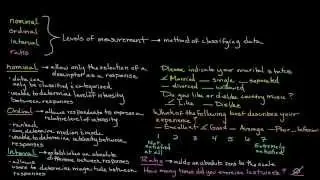 nominal
ordinal
interval
ratio
Levels of measurement → method of classifying data
nominal → allow only the selection of a
descriptor as a response
- data can
only be classified & categorized
- unable to determine level of intensity
between responses
Ordinal → allow respondents to express
relative level of intensity
- ranked
- can determine median & mode
- unable to determine intensity between
responses
Interval → establishes an absolute
difference between responses
- used to determine magnitude between
responses
Please indicate your marital status
Married single separated
divorced widowed
Do you like or dislike country music?
Like Dislike
What of the following best describes your
experience?
Excellent Good Average Poor
1 2 3 4 5 6 7
Not
at all
Ratio → adds an absolute zero to the scale
How many times did you exercise last week?